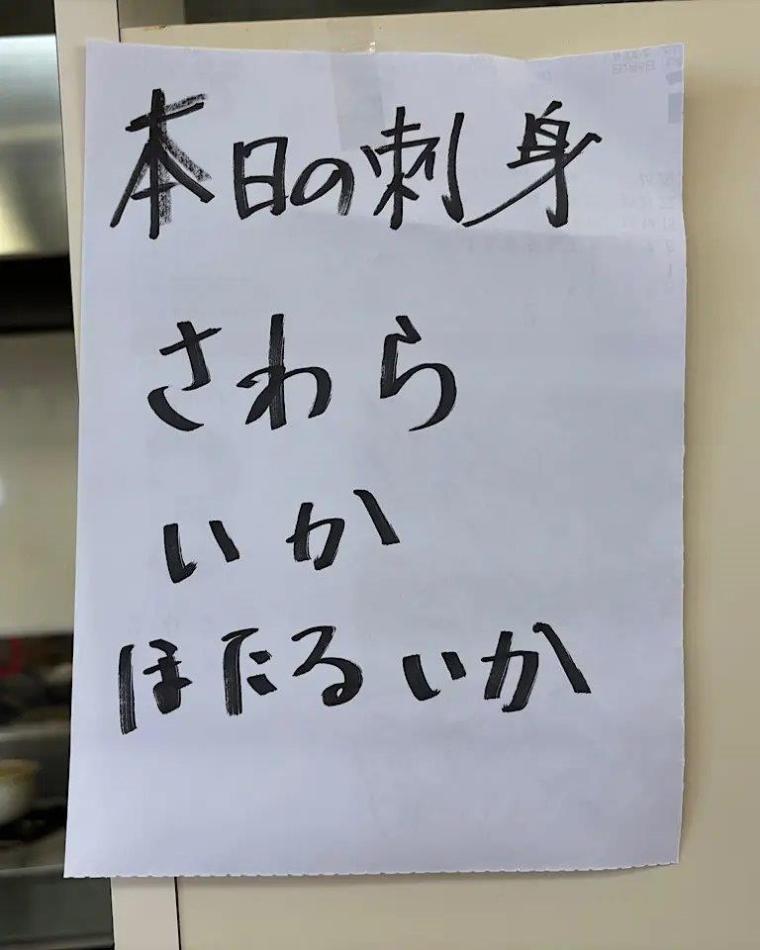 本日の刺身
さわら
いか
ほたるいか